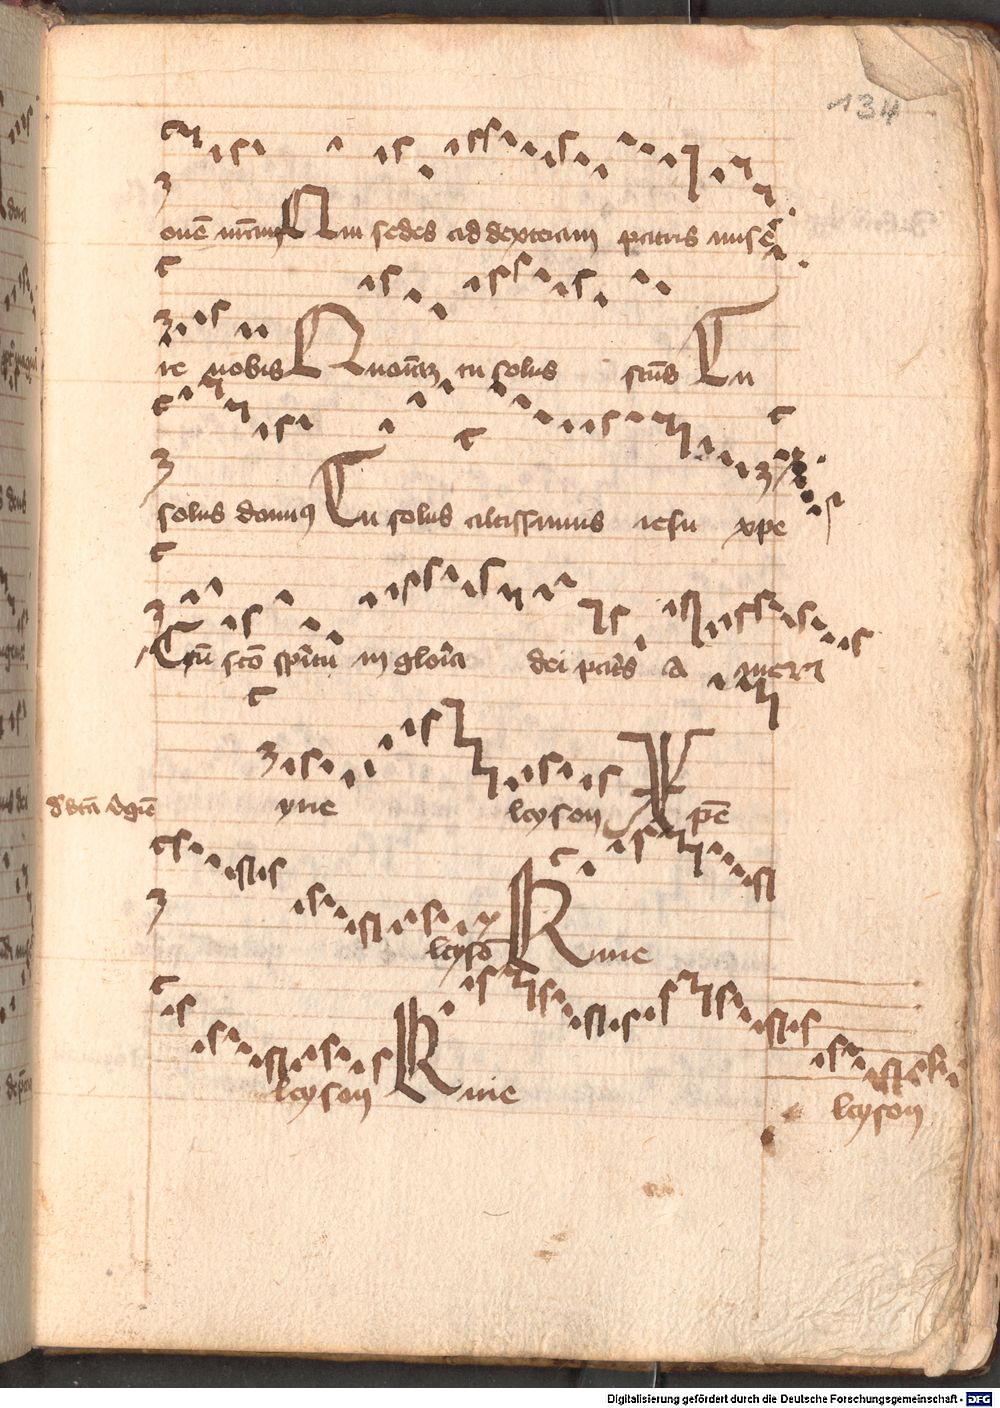 134
onē nr̄am Qui sedes ad dexteram patris mise
re nobis Quonīaʒ tu solus scūs Tu
solus domīꝰ Tu solus altissimus iesu xpe
Cū scō spīritu in glōria dei patris A men
yrie leyson Xpē
leysō Kirie
leyson Kirie leyson
Digitalisierung gefördert durch die Deutsche Forschungsgemeinschaft - DFG